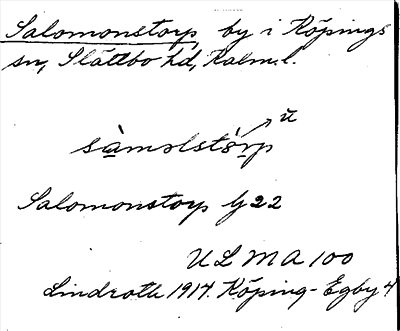 Salomonstorp, by i Köpings
sn, Slättbo hd, Kalm.l.
ŭ
sàmɔlstòrp
Salomonstorp G22
ULMA 100
Lindroth 1917. Köping-Egby 4